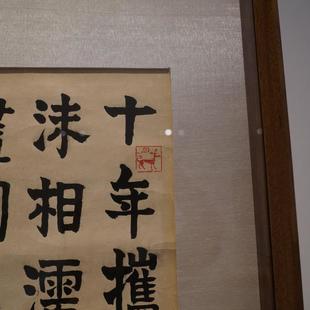 十年攜
沫相濡